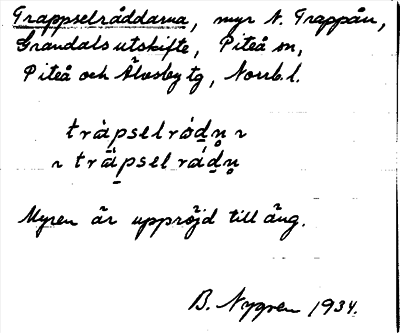 Trappselråddarna, myr N. Trappån,
Grandals utskifte, Piteå sn,
Piteå och Älvsby tg, Norrb. l.
trȧpselrȯd̲n̥ ~
~ trä̲pselrȧd̲n̥
Myren är uppröjd till äng.
B. Nygren 1934.